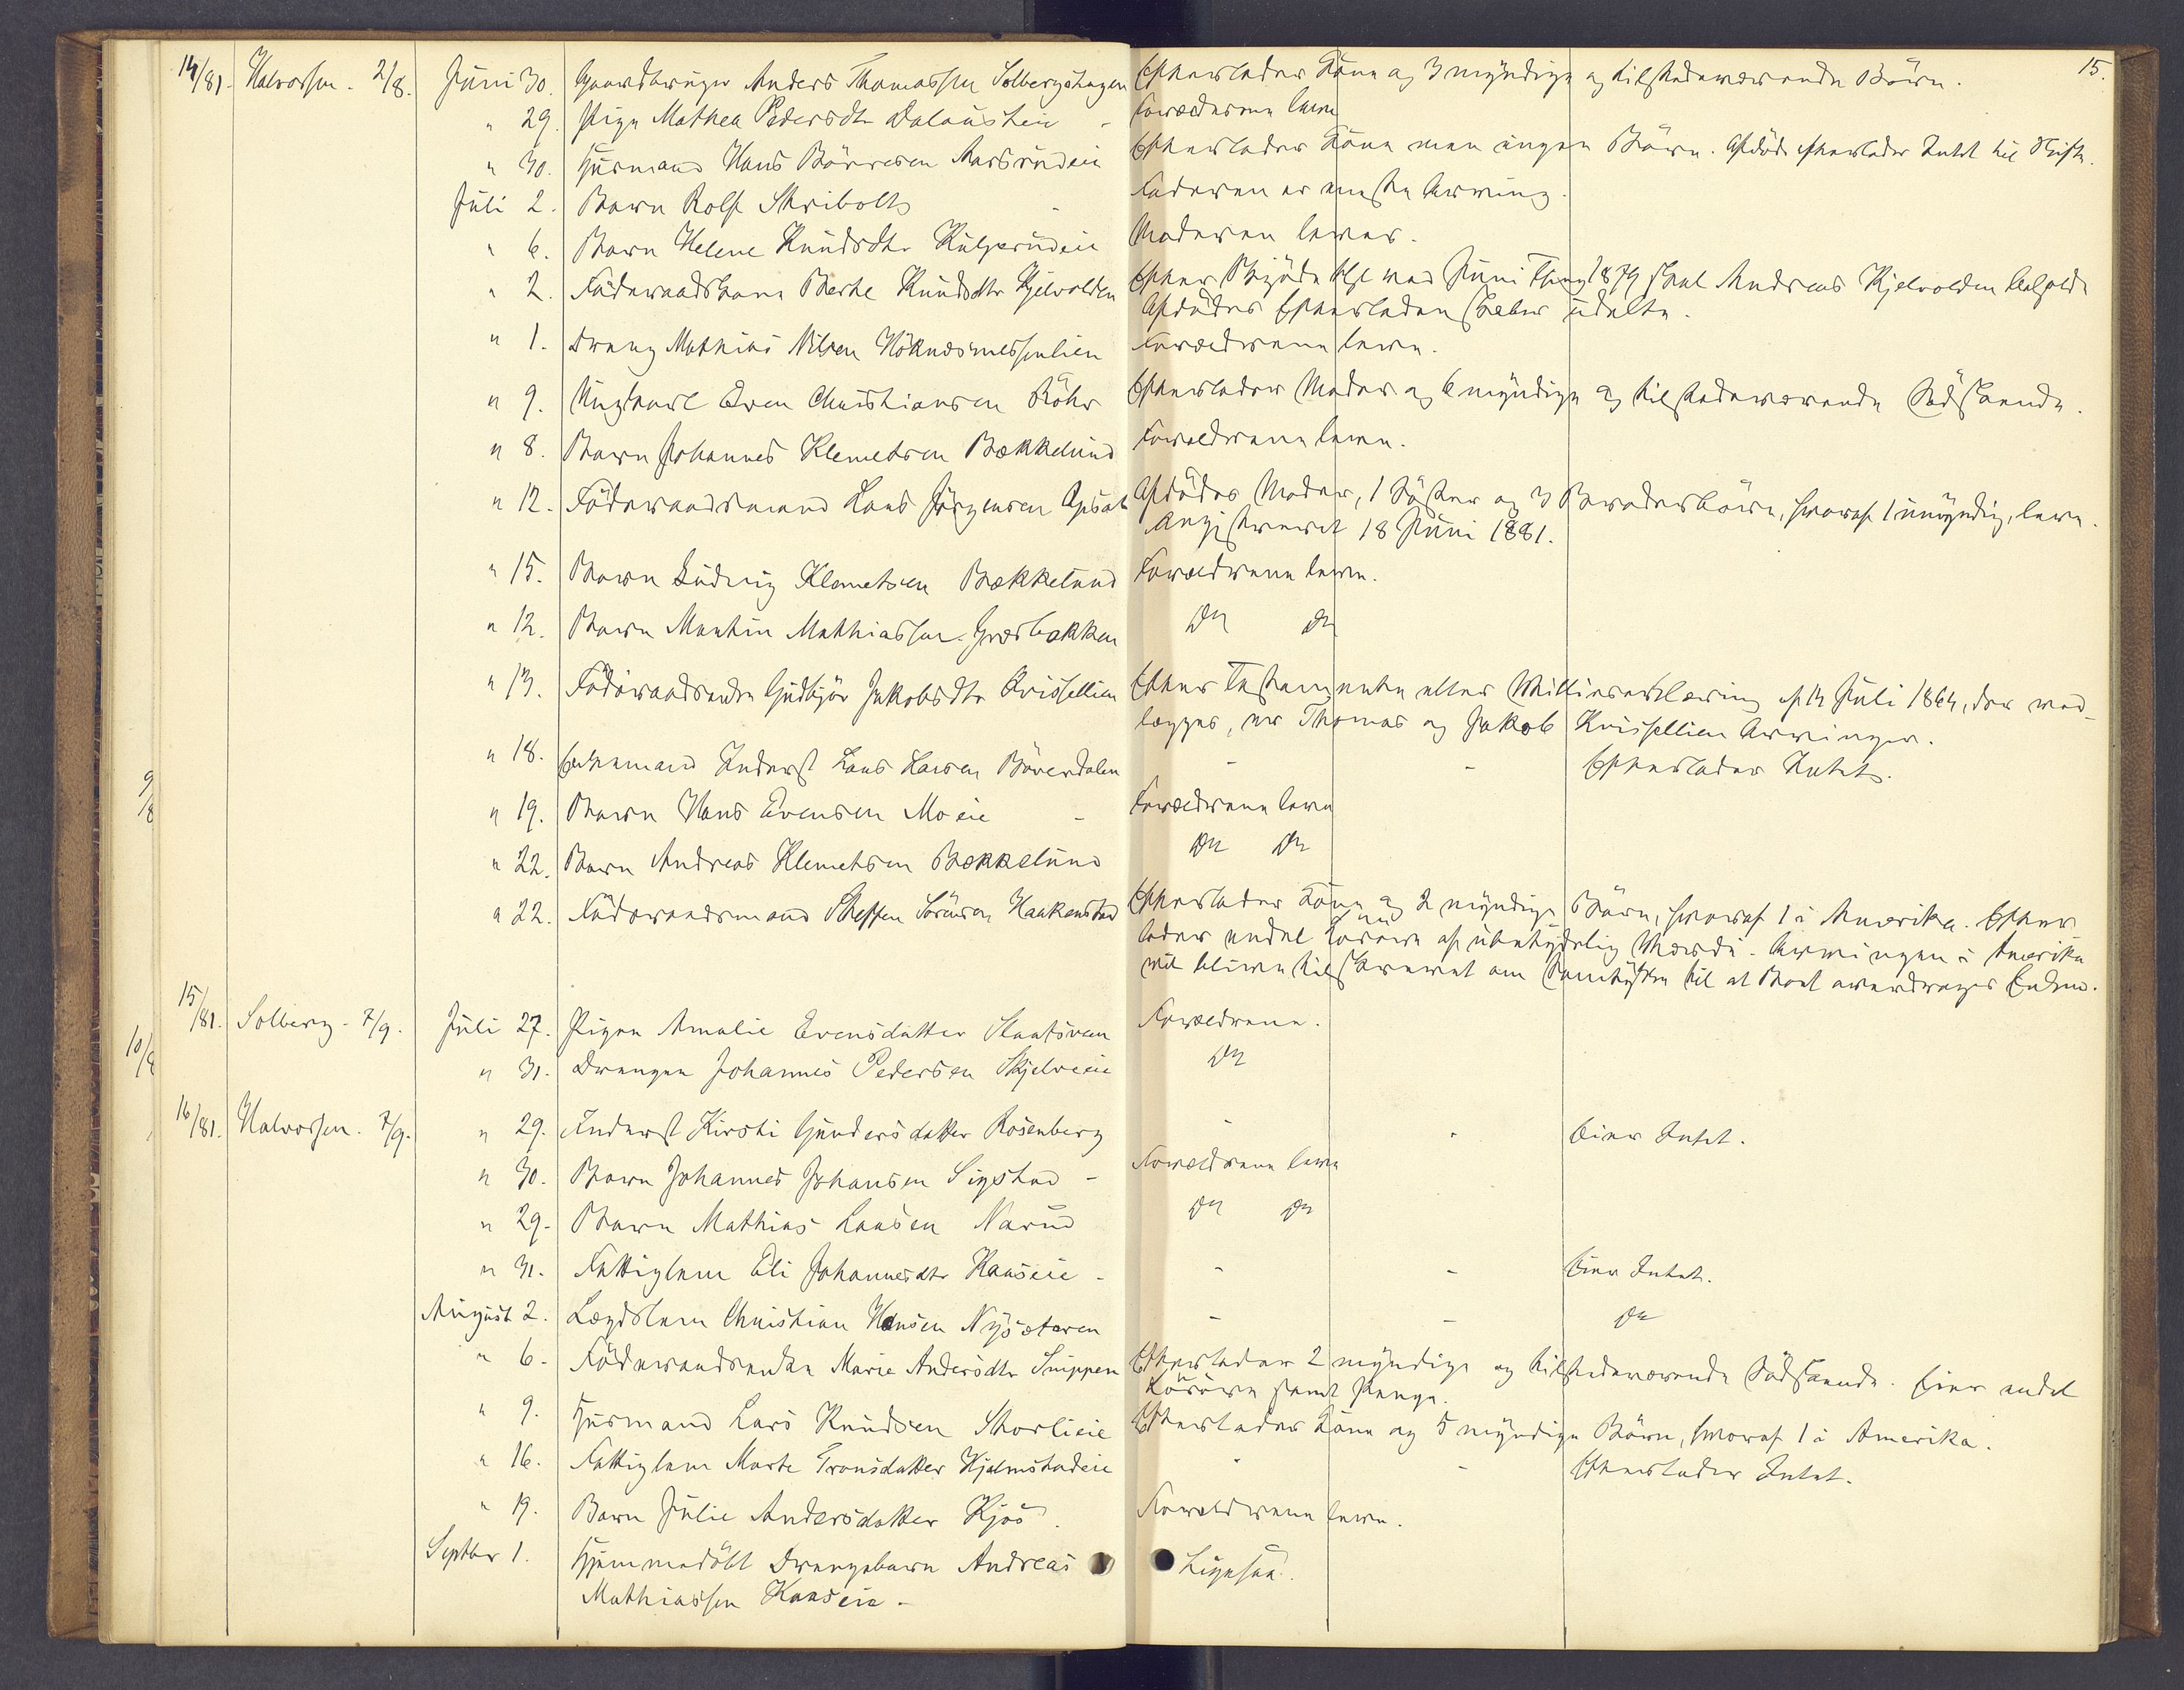 15.
14/81. Halvorsen. 2/8. Juni 30. Gaardbruger Anders Thomassen Solbergshagen Efterlader Kone og 3 myndige og tilstedeværende Börn.
" 29. Pige Mathea Pedersdtr Dalaustein - Forældrene leve
" 30. Husmand Hans Börresen Aarsrudeie Efterlader Kone men ingen Börn. Afdöde efterlader Intet til Skifte.
Juli 2. Barn Rolf Skribolt - Faderen er eneste Arving.
" 6. Barn Helene Knudsdtr Kulperudeie Moderen lever.
" 2. Föderaadskone Berthe Knudsdtr Kjelvolden Efter Skjöde tgl. ved Juni Thing 1879 skal Andreas Kjelvolden beholde
Afdödes Efterladenskaber udelte.
" 1. Dreng Mathias Nilsen Höknesmessenlien Forældrene leve.
" 9. Ungkarl Even Christiansen Röhr Efterlader Moder og 6 myndige og tilstedeværende Södskende.
" 8. Barn Johannes Klemetsen Bækkelund Forældrene leve.
" 12. Föderaadsmand Lars Jörgensen Opsat Afdödes Moder, 1 Söster og 3 Broderbörn, hvoraf 1 umyndig, leve.
Registreret 18 Juni 1881.
" 15. Barn Ludvig Klemetsen Bækkelund Forældrene leve.
" 12. Barn Martin Mathiassen Græsbakken Do Do
" 13. Föderaadsenke Gudbjör Jakobsdtr Kvissellien Efter Testamente eller Villieserklæring af 14 Juli 1864, der ved-
lægges, er Thomas og Jakob Kvissellien Arvinger.
" 18. Enkemand Inderst Lars Larsen Böverdalen - - Efterlader Intet.
" 19. Barn Hans Evensen Moeie - Forældrene leve
" 22. Barn Andreas Klemetsen Bækkelund Do Do
" 22. Föderaadsmand Steffen Sörensen Haakenstad Efterlader Kone og 2 myndige Börn, hvoraf 1 i Amerika. Efter-
lader endel Lösöre af ubetydelig Værdi. Arvingen i Amerika
vil blive tilskrevet om Samtykke til at Boet overdrages Enken.
15/81. Solberg. 7/9. Juli 27. Pigen Amalie Evensdatter Staafsveen Forældrene.
" 31. Drengen Johannes Pedersen Skjelveeie Do
16/81. Halvorsen. 7/9. " 29. Inderst Kirsti Gundersdatter Rosenberg - - Eier Intet.
" 30. Barn Johannes Johansen Sigstad - Forældrene leve
" 29. Barn Mathias Larsen Narud Do Do
" 31. Fattiglem Eli Johannesdtr Kaaseie - - - Eier Intet.
August 2. Lægdslem Christian Hansen Nysæteren - - Do
" 6. Föderaadsenke Marie Andersdtr Snippen Efterlader 2 myndige og tilstedeværende Södskende. Eier endel
Lösöre samt Penge.
" 9. Husmand Lars Knudsen Storlieie Efterlader Kone og 5 myndige Börn, hvoraf 1 i Amerika.
" 16. Fattiglem Marte Tronsdatter Hjelmstadeie - - Efterlader Intet.
" 19. Barn Julie Andersdatter Kjos. Forældrene leve.
Septbr 1. Hjemmedöbt Drengebarn Andreas Ligesaa.
Mathiassen Kaaseie -
9/8
10/8